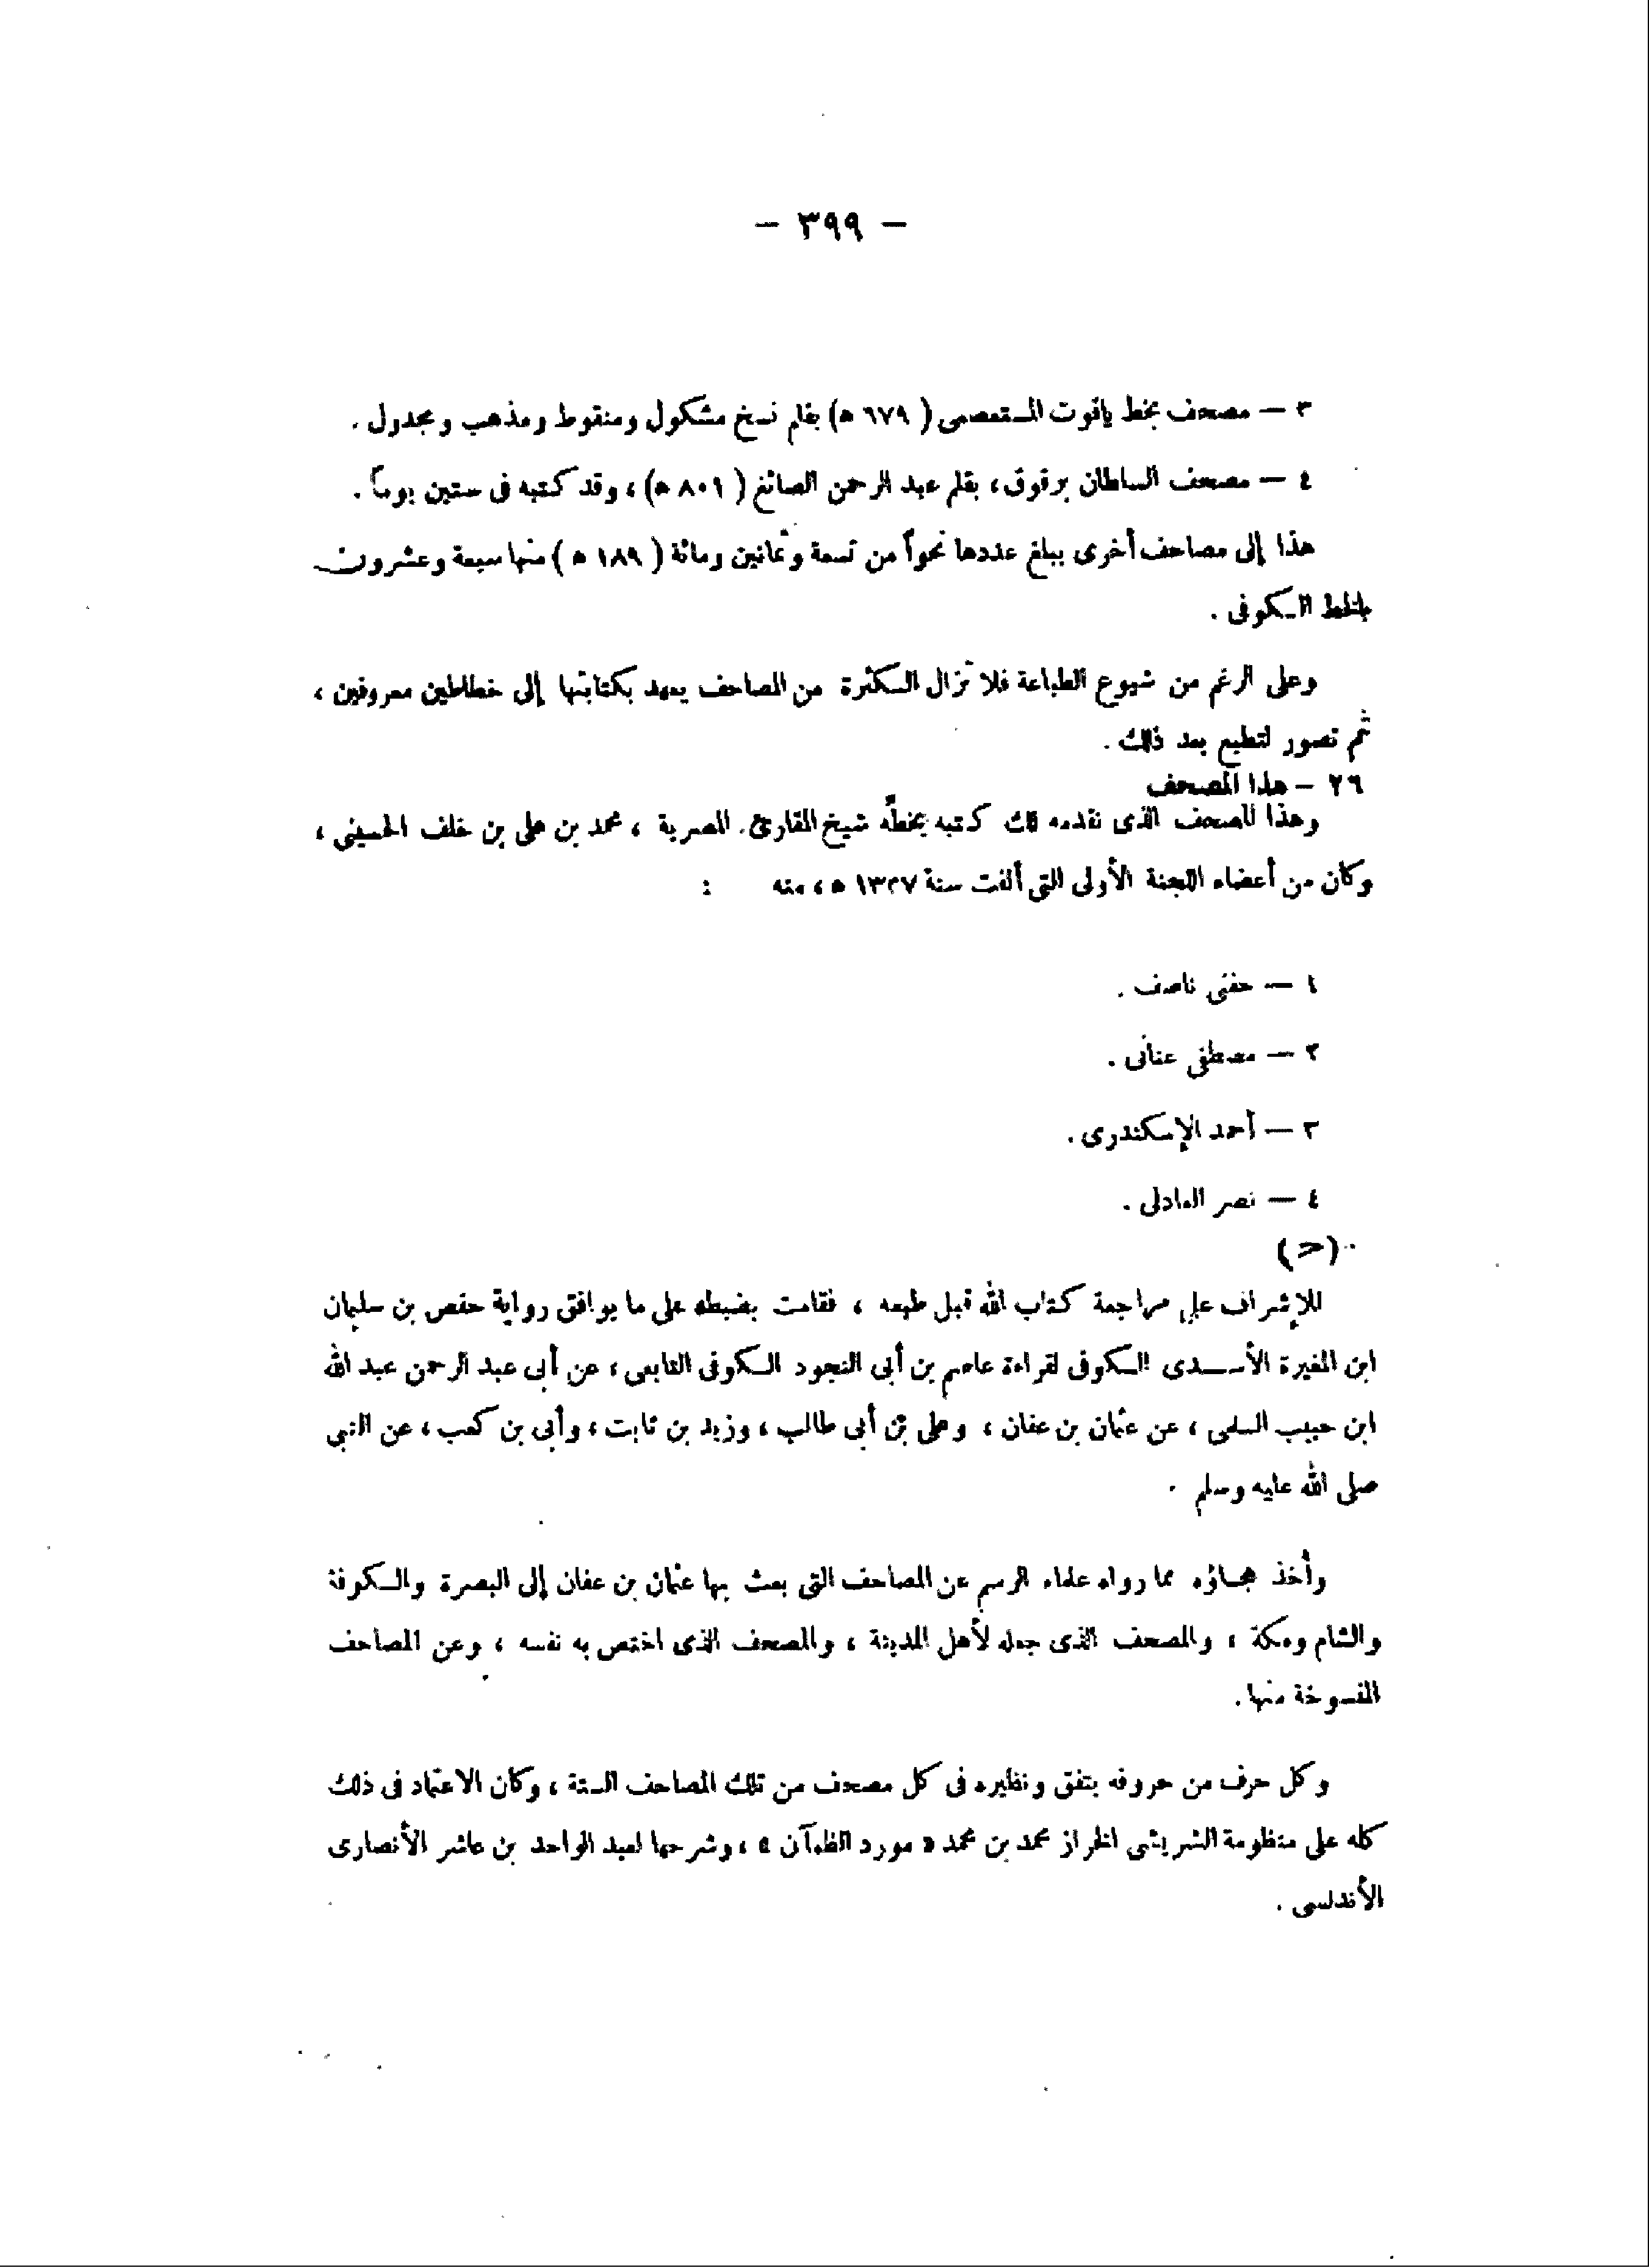 — ٣٩٩ —
٣ — مصحف بخط ياقوت المستعصمى ( ٦٧٩ ه) بقلم نسخ مشكول ومنقوط ومذهب ومجدول .
٤ — مصحف السلطان برقوق ، بقلم عبد الرحمن الصائغ ( ٨٠١ ه) ، وقد كتبه فى ستين يوماً .
هذا إلى مصاحف أخرى يبلغ عددها نحواً من تسعة وثمانين ومائة ( ١٨٩ ه ) منها سبعة وعشرون
بالخط الكوفى .
وعلى الرغم من شيوع الطباعة فلا تزال الكثرة من المصاحف يعهد بكتابتها إلى خطاطين معروفين ،
ثم تصور لتطبع بعد ذلك .
٢٦ – هذا المصحف
وهذا المصحف الذى نقدمه لك كتبه بخطه شيخ المقارئ المصرية ، محمد بن على بن خلف الحسينى ،
وكان من أعضاء اللجنة الأولى التى ألفت سنة ١٣٣٧ ه ، منه :
١ — حفنى ناصف .
٢ — مصطفى عنانى .
٣ — أحمد الإسكندرى .
٤ — نصر العادلى .
(ح)
للإشراف على مراجعة كتاب الله قبل طبعه ، فقامت بضبطه على ما يوافق رواية حفص بن سليمان
ابن المغيرة الأســدى الكوفى لقراءة عاصم بن أبى النجود الكوفى التابعى ، عن أبى عبد الرحمن عبد الله
ابن حبيب السلمى ، عن عثمان بن عفان ، وعلى بن أبى طالب ، وزيد بن ثابت ، وأبى بن كعب ، عن النبى
صلى الله عليه وسلم .
وأخذ هجاؤه مما رواه علماء الرسم عن المصاحف التى بعث بها عثمان بن عفان إلى البصرة والكوفة
والشام ومكة ، والمصحف الذى جعله لأهل المدينة ، والمصحف الذى اختص به نفسه ، وعن المصاحف
المنسوخة منها .
وكل حرف من حروفه يتفق ونظيره فى كل مصحف من تلك المصاحف الستة ، وكان الاعتماد فى ذلك
كله على منظومة الشريشى الخراز محمد بن محمد « مورد الظمآن » ، وشرحها لعبد الواحد بن عاشر الأنصارى
الأندلسى .